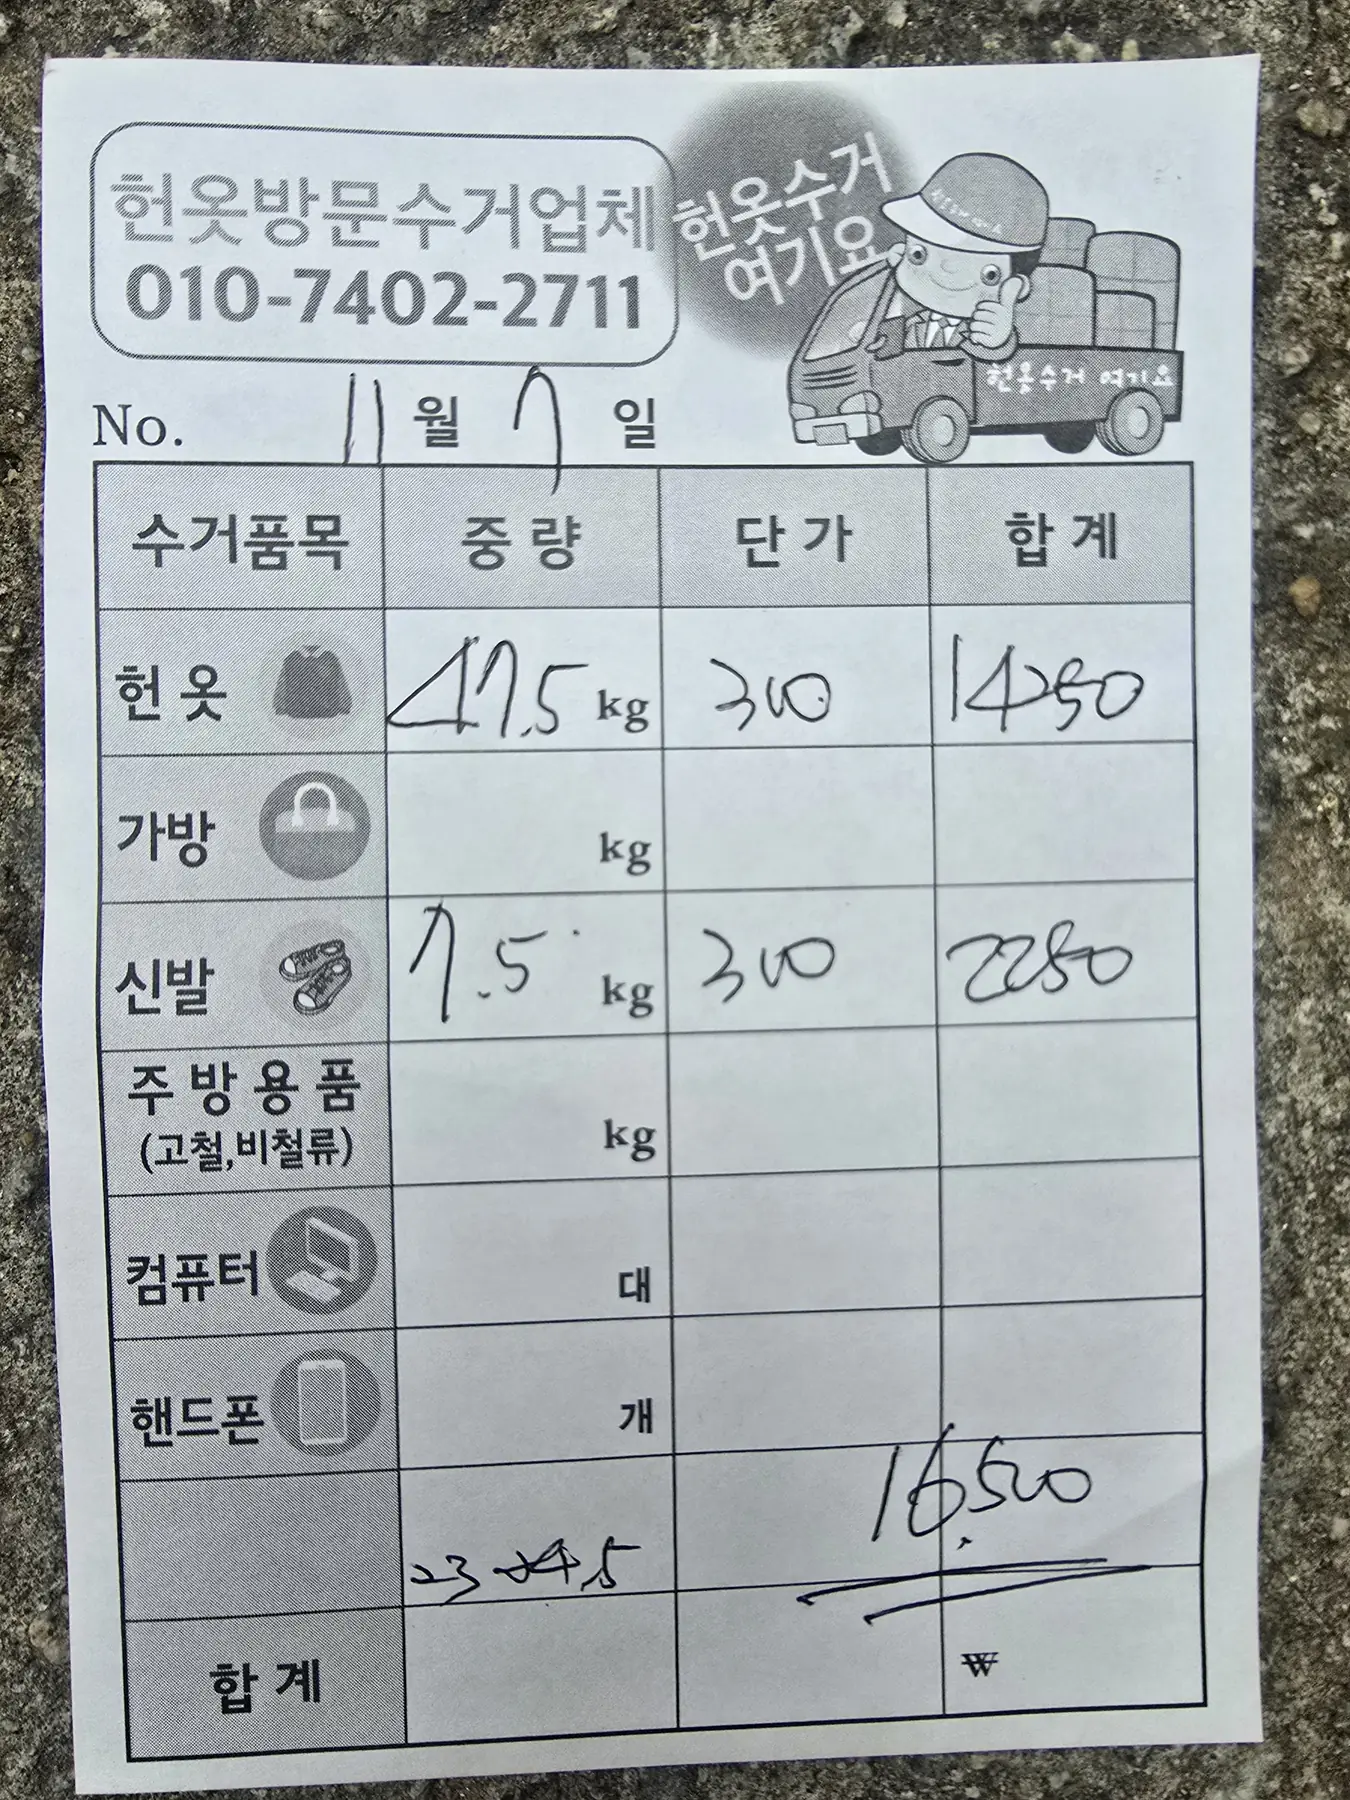 헌옷방문수거업체
010-7402-2711
헌옷수거
여기요
헌옷수거 여기요
No. 11월 7일
수거품목 중 량 단 가 합 계
헌 옷 47.5 kg 300 14250
가방 kg
신발 7.5 kg 300 2250
주 방 용 품
(고철,비철류) kg
컴퓨터 대
핸드폰 개
16,500
23 24.5
합 계 ₩